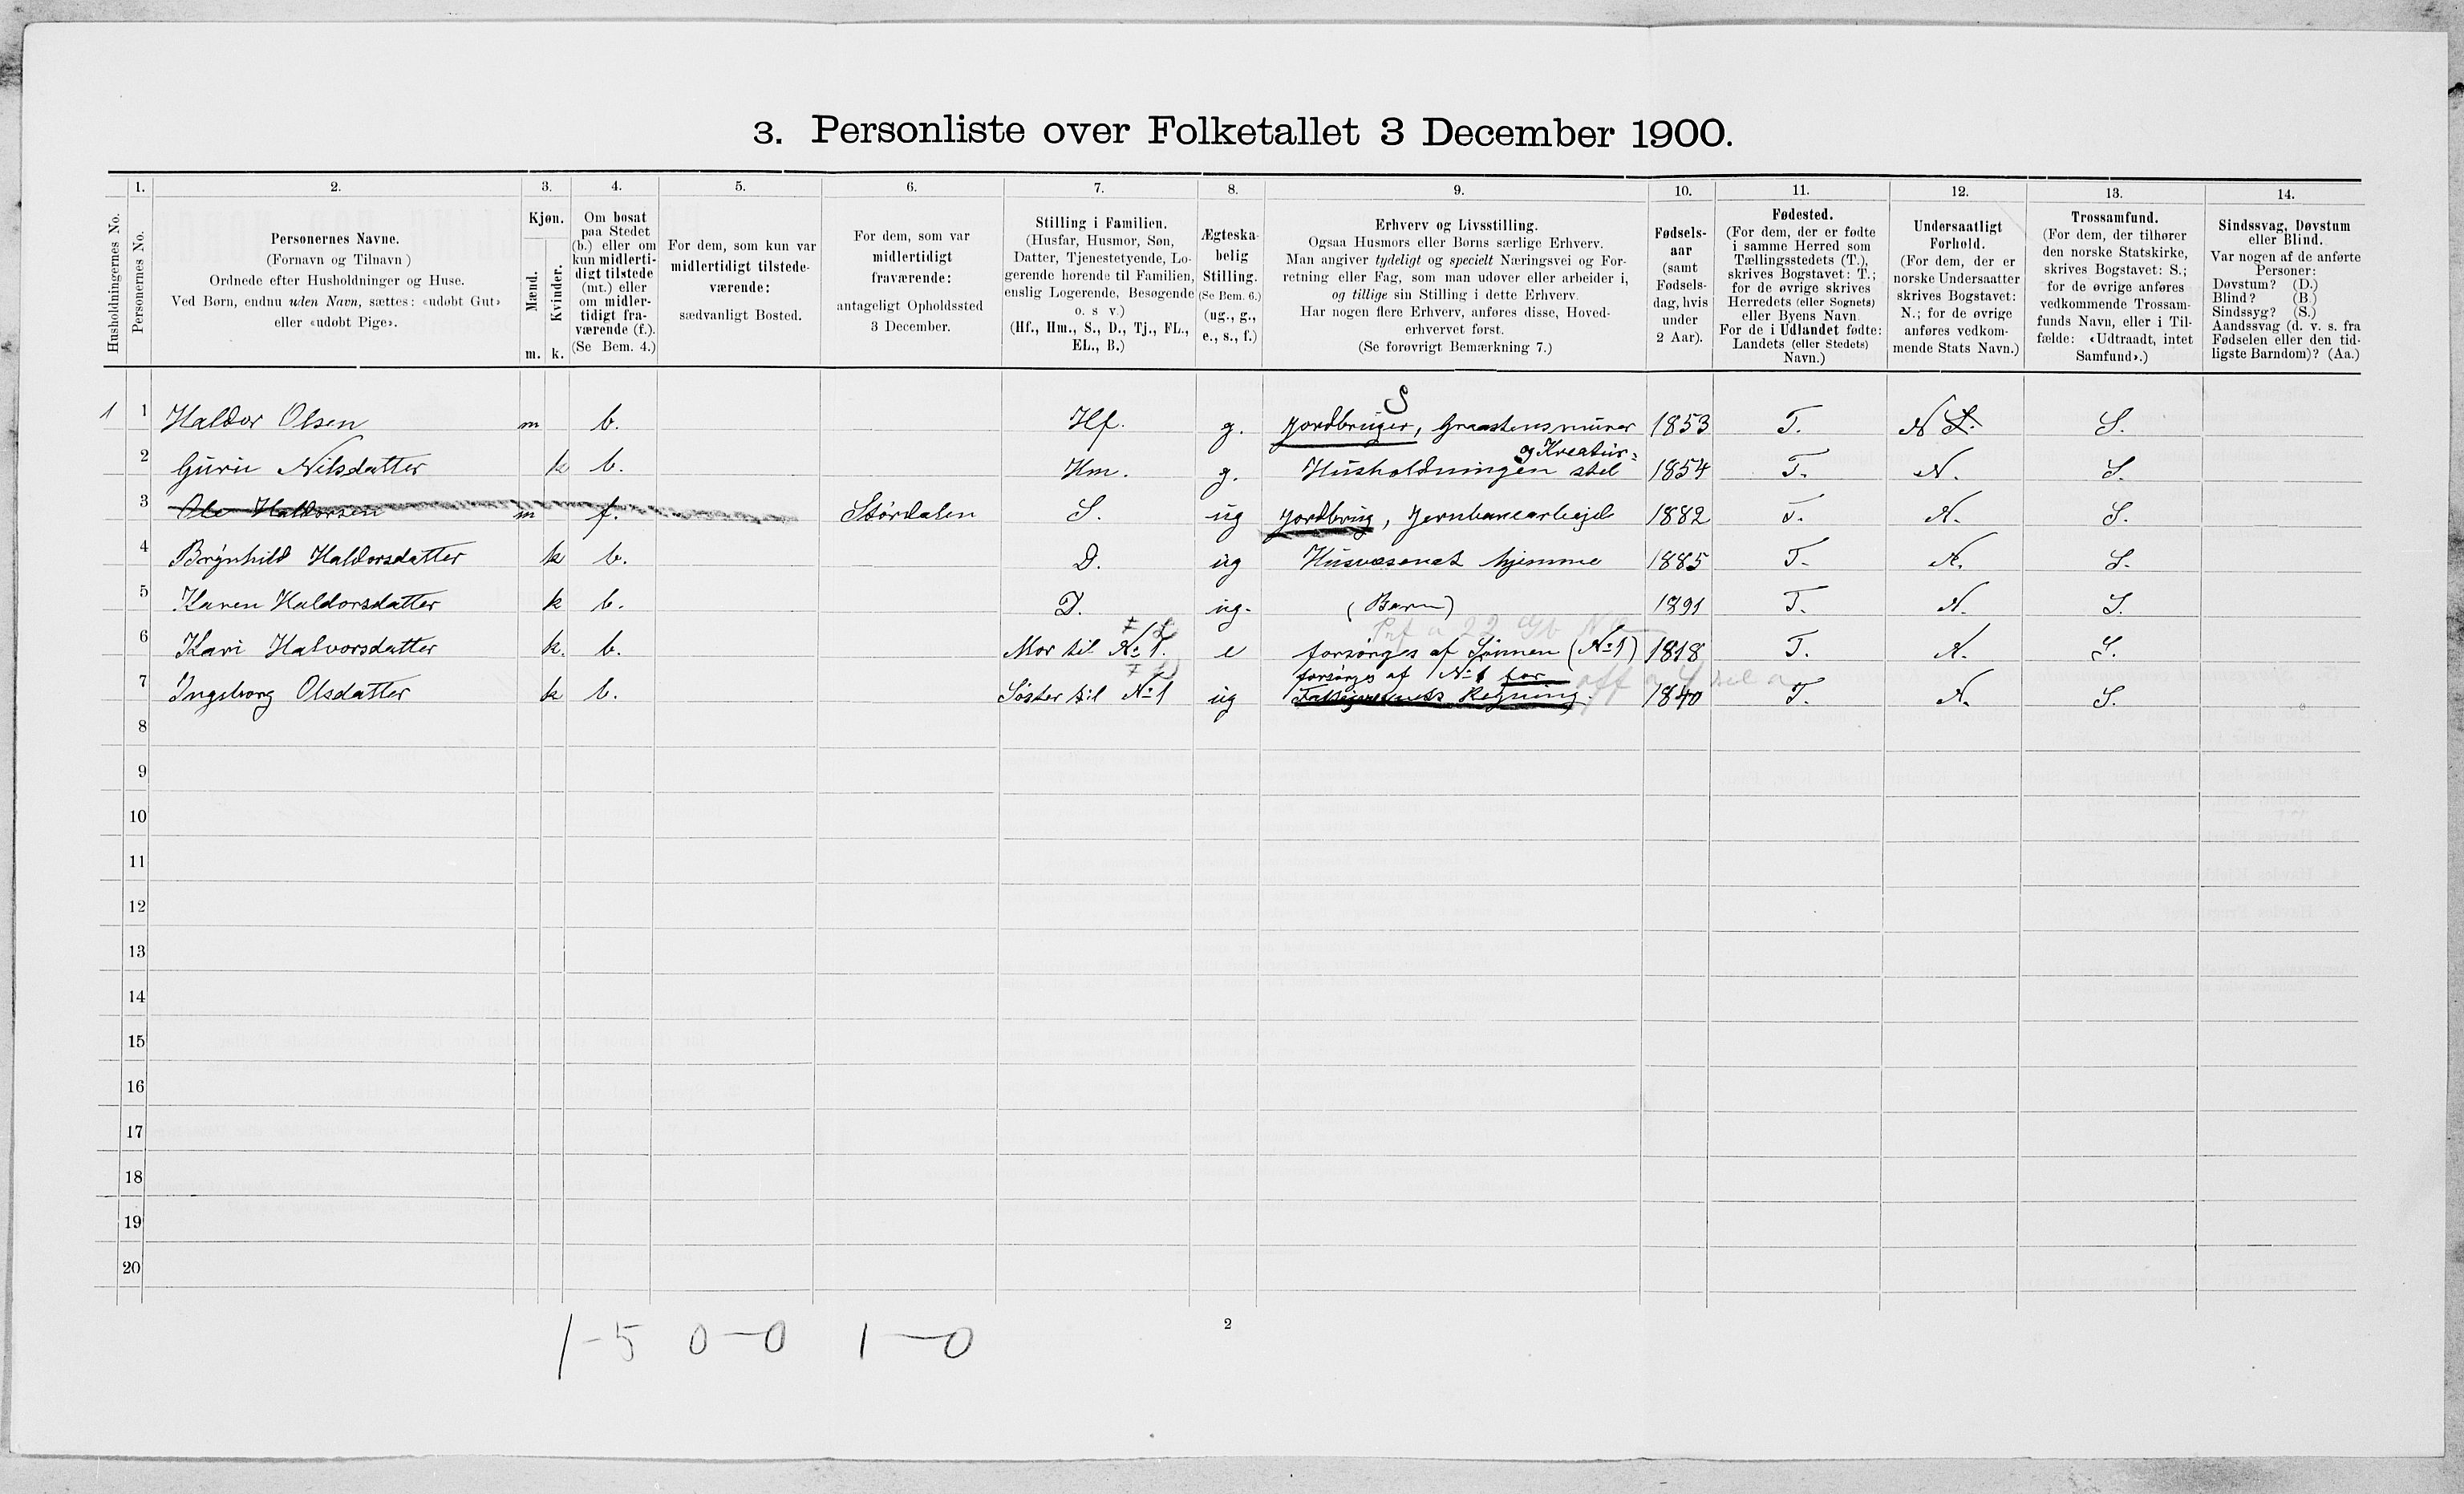 3. Personliste over Folketallet 3 December 1900.
1. 2. 3. 4. 5. 6. 7. 8. 9. 10. 11. 12. 13. 14.
Husholdningernes No.
Personernes No.
Personernes Navne.
(Fornavn og Tilnavn)
Ordnede efter Husholdninger og Huse.
Ved Børn, endnu uden Navn, sættes: «udøbt Gut»
eller «udøbt Pige».
Kjøn.
Mænd.
Kvinder.
m. k.
Om bosat
paa Stedet
(b.) eller om
kun midlerti-
digt tilstede
(mt.) eller
om midler-
tidigt fra-
værende (f.).
(Se Bem. 4.)
For dem, som kun var
midlertidigt tilstede-
værende:
sædvanligt Bosted.
For dem, som var
midlertidigt
fraværende:
antageligt Opholdssted
3 December.
Stilling i Familien.
(Husfar, Husmor, Søn,
Datter, Tjenestetyende, Lo-
gerende hørende til Familien,
enslig Logerende, Besøgende
o. s v.)
(Hf., Hm., S., D., Tj., FL.,
EL., B.)
Ægteska-
belig
Stilling.
(Se Bem. 6.)
(ug., g.,
e., s., f.)
Erhverv og Livsstilling.
Ogsaa Husmors eller Børns særlige Erhverv.
Man angiver tydeligt og specielt Næringsvei og For-
retning eller Fag, som man udøver eller arbeider i,
og tillige sin Stilling i dette Erhverv.
Har nogen flere Erhverv, anføres disse, Hoved-
erhvervet først.
(Se forøvrigt Bemærkning 7.)
Fødsels-
aar
(samt
Fødsels-
dag, hvis
under
2 Aar).
Fødested.
(For dem, der er fødte
i samme Herred som
Tællingsstedets (T.),
skrives Bogstavet: T.;
for de øvrige skrives
Herredets (eller Sognets)
eller Byens Navn.
For de i Udlandet fødte:
Landets (eller Stedets)
Navn.)
Undersaatligt
Forhold.
(For dem, der er
norske Undersaatter
skrives Bogstavet:
N.; for de øvrige
anføres vedkom-
mende Stats Navn.)
Trossamfund.
(For dem, der tilhører
den norske Statskirke,
skrives Bogstavet: S.;
for de øvrige anføres
vedkommende Trossam-
funds Navn, eller i Til-
fælde: «Udtraadt, intet
Samfund».)
Sindssvag, Døvstum
eller Blind.
Var nogen af de anførte
Personer:
Døvstum? (D.)
Blind? (B.)
Sindssyg? (S.)
Aandssvag (d. v. s. fra
Fødselen eller den tid-
ligste Barndom)? (Aa.)
S
1 1 Haldor Olsen m b. Hf. g. Jordbruger, Graastensmurer 1853 T. N S. S.
og Kreatur-
2 Guru Nilsdatter k b. Hm. g. Husholdningen stel 1854 T. N. S.
3 Ole Haldorsen m f. Stördalen S. ug Jordbrug, Jernbanearbejde 1882 T. N. S.
4 Brynhild Haldorsdatter k b. D. ug Husvæsenet hjemme 1885 T. N. S.
5 Karen Haldorsdatter k b. D. ug. (Barn) 1891 T. N. S.
6 Kari Halvorsdatter k. b. Mor til No 1. e forsörges af Sönnen (No 1) 1818 T. N. S.
forsörges af No 1 for
7 Ingeborg Olsdatter k b. Söster til No 1 ug Regning. 1840 T. N. S.
8
9
10
11
12
13
14
15
16
17
18
19
20
1-5 0-0 1-0
2